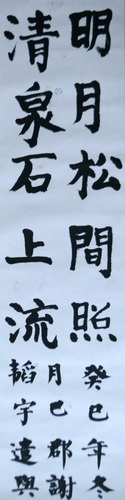 明月松間照
清泉石上流
癸巳年冬
月巳郡謝
韜宇遣興